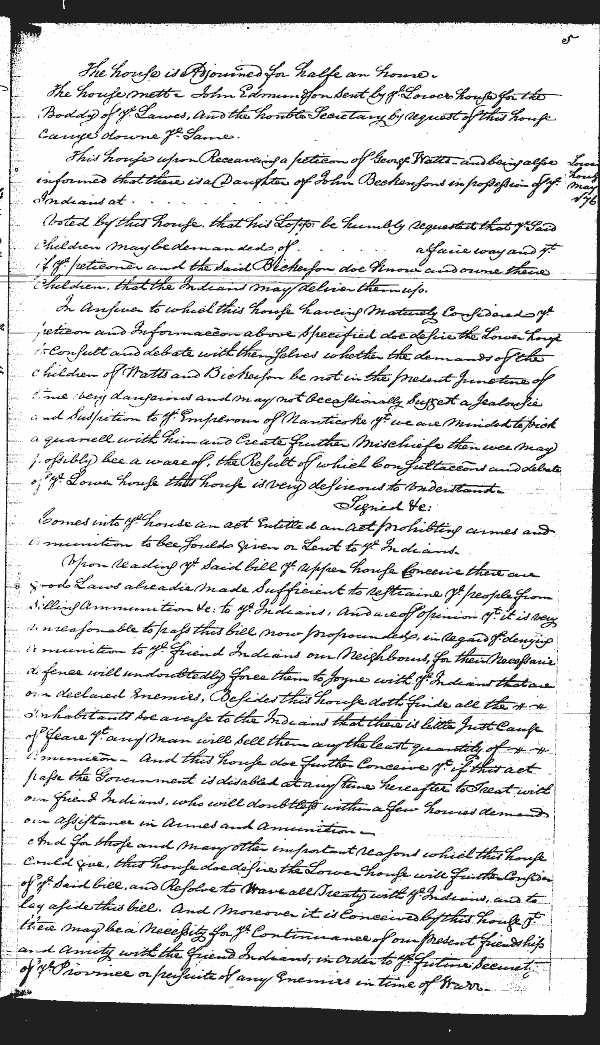 5
The house is Adjourned for halfe an houre.
The house mett. John Edmundson sent by ye Lower house for the
Boddy of ye Lawes, And the honble Secretary by request of this house
Carrye downe ye Same.
This house upon Receaving a peticon of George Watts and being alsoe
informed that there is a Daughter of John Beckensons in possession of ye
Indians at . . . . . . .
Voted by this house, that his Lopp be humbly requested that ye Said
Children may be demanded of a faire way and yt
if ye peticoner and the Said Bickerson doe Know and owne theire
Children, that the Indians may deliver them up.
In Answer to which this house haveing Maturely Considered ye
peticon and Informacon above Specified doe desire the Lower house
to Consult and debate with themselves whether the demands of the
Children of Watts and Bickerson be not in the present Juncture of
time very dangerous and may not occasionally Suggest a Jealousie
and Suspition to ye Emperour of Nanticoke yt we are minded to pick
a quarrell with him and Create further Mischiefe then wee may
possibly bee aware of, the Result of which Consultacons and debate
of ye Lower house this house is very desireous to understand.
Signed &c:
Comes into ye house an act Entitled an act prohibiting armes and
amunition to bee sould given or Lent to ye Indians.
Upon reading ye Said bill ye upper house Conceive there are
good Laws alreadie made Sufficient to restraine ye people from
Selling Ammunition &c: to ye Indians, And are of opinion yt it is very
unreasonable to pass this bill now propounded, in regard ye denying
amunition to ye friend Indians our Neighbours, for their Necessarie
defence will undoubtedly force them to Joyne with ye Indians that are
our declared Enemies, Besides this house doth finde all the
Inhabitants soe averse to the Indians that there is little Just Cause
of feare yt any man will sell them any the least quantity of
Amunicon. And this house doe further Conceive yt if this act
passe the Government is disabled at any time hereafter to Treat with
our friend Indians, who will doubtless within a few houres demand
our assistance in Armes and Amunition
And for those and many other important reasons which this house
Could give, this house doe desire the Lower house will further Consider
of ye Said bill, and Resolve to Wave all Treaty with ye Indians, and to
lay aside this bill. And Moreover it is Conceived by this house yt
there may be a Necessity for ye Continuance of our present friendship
and Amity with the friend Indians, in order to ye future Securety
of ye Province or persuite of any Enemies in time of Warr.